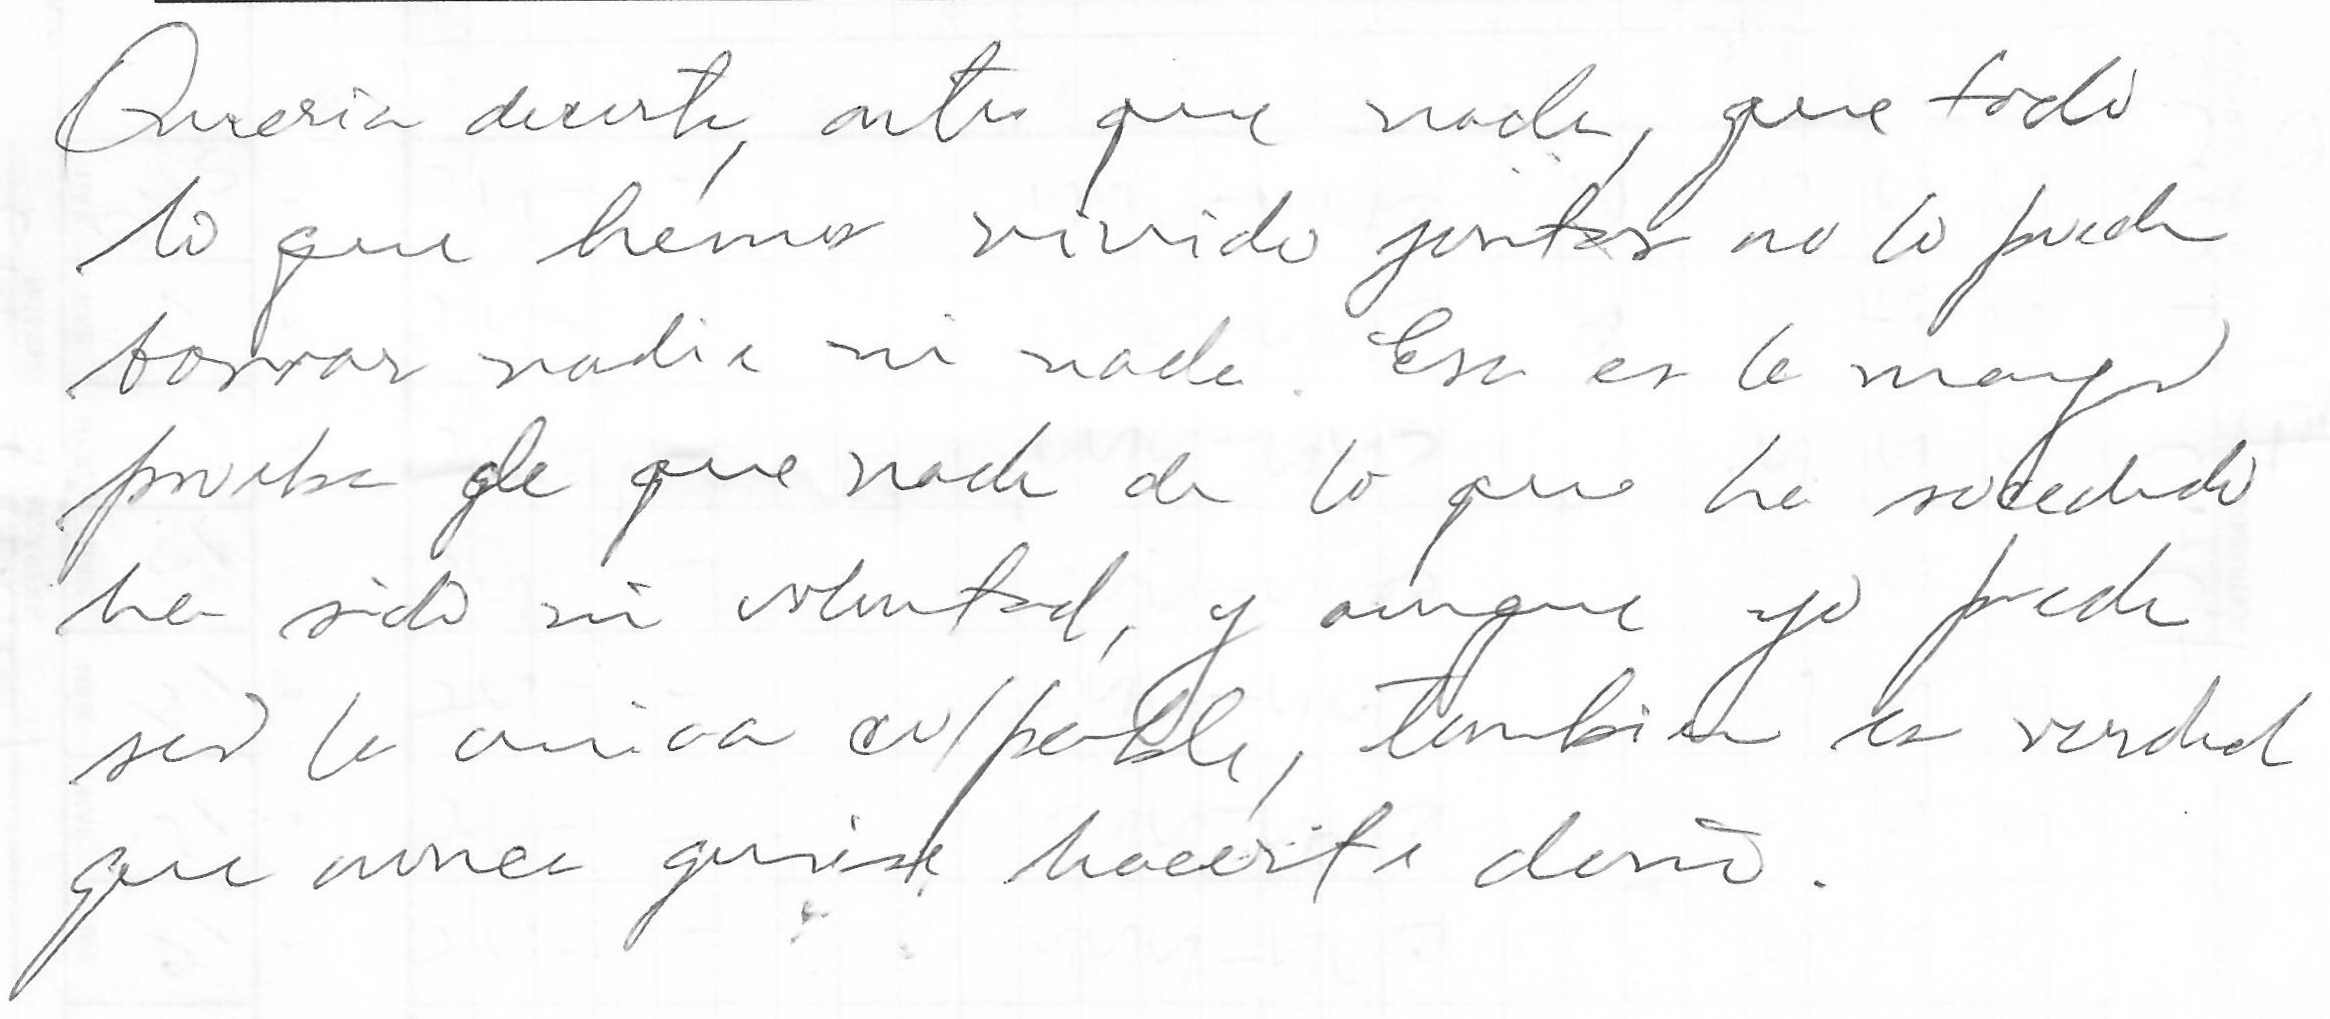 Queria decirte, antes que nada, que todo
lo que hemos vivido juntos no lo puede
borrar nadie ni nada. Esa es la mayor
prueba de que nada de lo que ha sucedido
ha sido mi voluntad, y aunque yo puede
ser la unica culpable, tambien es verdad
que nunca quise hacerte daño.